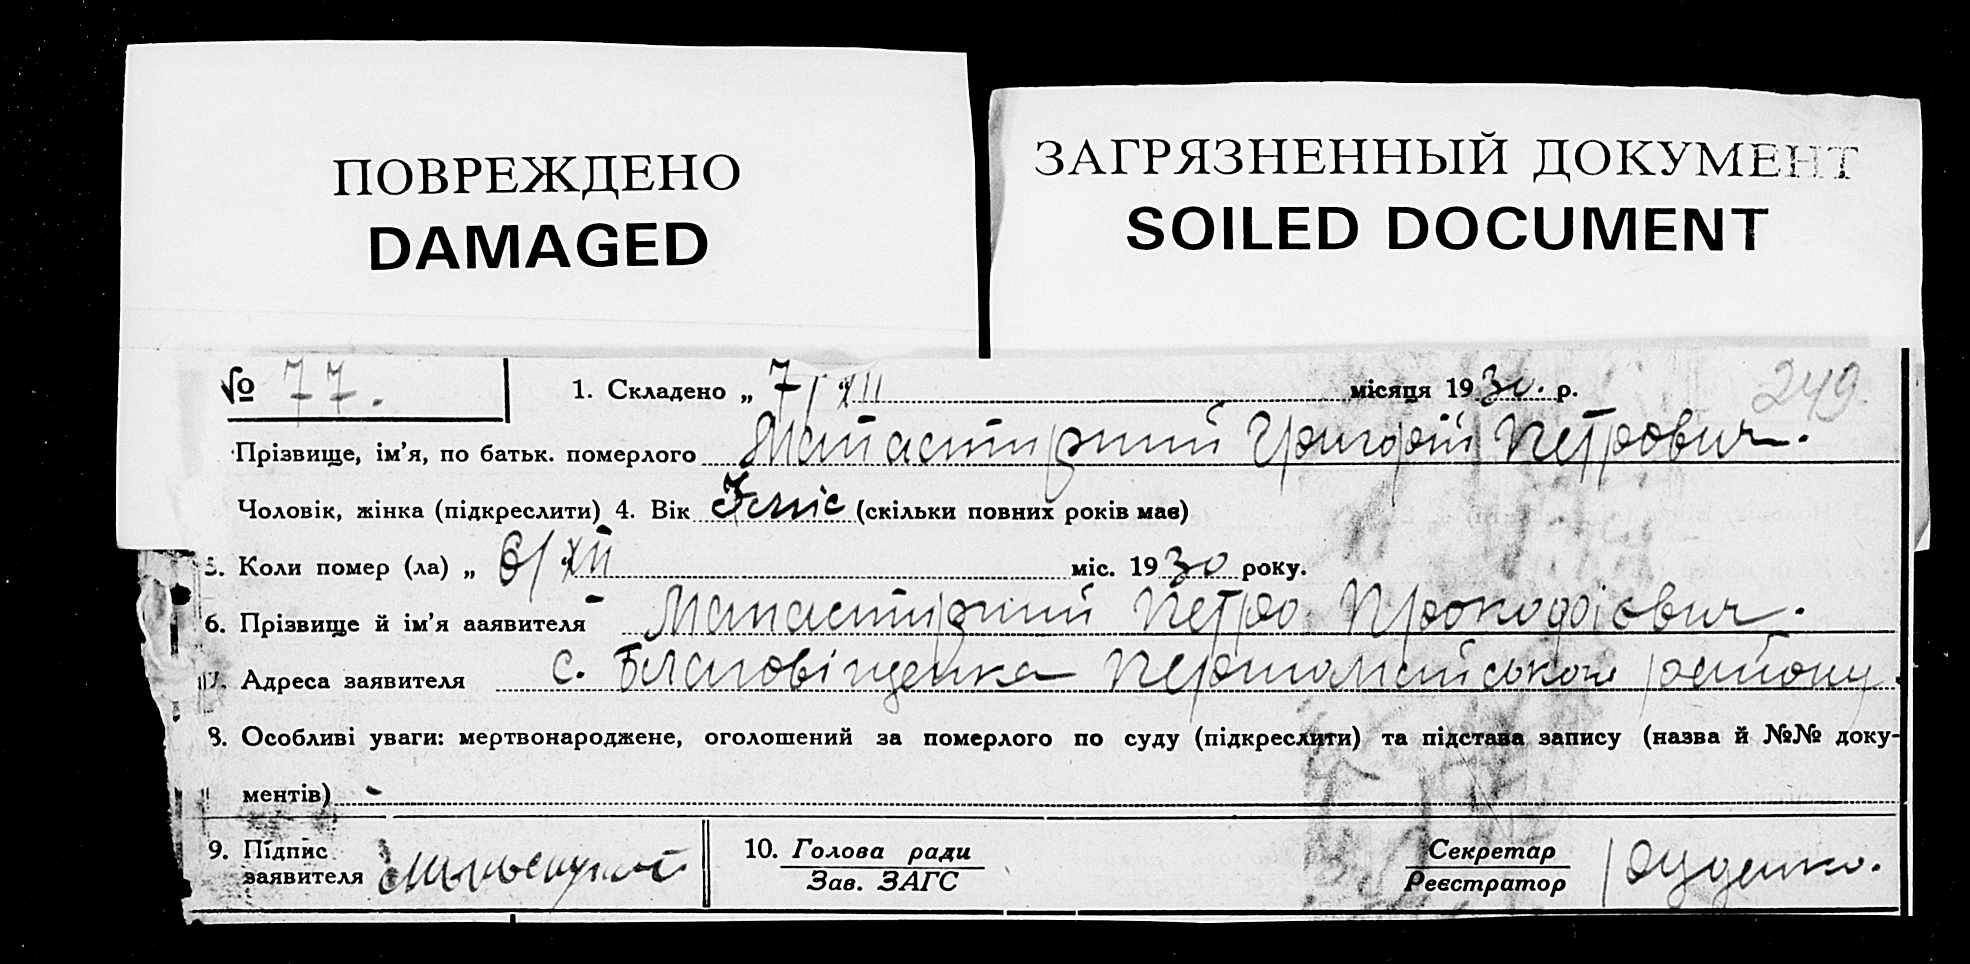 ПОВРЕЖДЕНО
DAMAGED
ЗАГРЯЗНЕННЫЙ ДОКУМЕНТ
SOILED DOCUMENT
№ 77.
1. Складено „ 7/XII місяця 1930. р.
249.
Прізвище, ім'я, по батьк. померлого Манастирний Григорій Петрович.
Чоловік, жінка (підкреслити) 4. Вік 7 міс (скільки повних років мав)
5. Коли помер (ла) „ 6/XII міс. 1930 року.
6. Прізвище й ім'я заявителя Манастирний Петро Прокофієвич.
7. Адреса заявителя с. Благовіщенка Першомайського району.
8. Особливі уваги: мертвонароджене, оголошений за померлого по суду (підкреслити) та підстава запису (назва й №№ доку-
ментів) -
9. Підпис
заявителя
10. Голова ради
Зав. ЗАГС
Секретар
Реєстратор